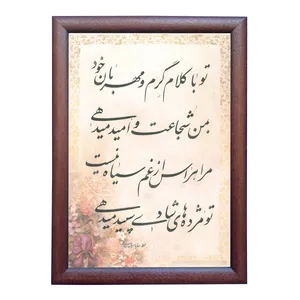 تو با کلام گرم و مهربان خود
بمن شجاعت و امید میدهی
مرا هراس از غم سیاه نیست
تو مژده های شادی سپید میدهی